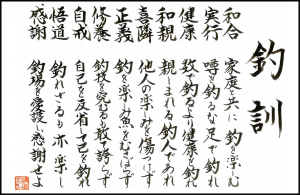 釣訓
和合 家庭共に釣を楽しむ
実行 噂を釣るな足で釣れ
健康 数で釣るより健康を釣れ
和親 親しまれる釣人であれ
喜隣 他人の楽しみを傷つけず
正義 釣を楽しみ魚むさぼらず
修養 釣技を究むるも敢て誇らず
自戒 自己を反省し己を釣れ
悟道 釣れざるも亦楽し
感謝 釣場を愛護し感謝せよ